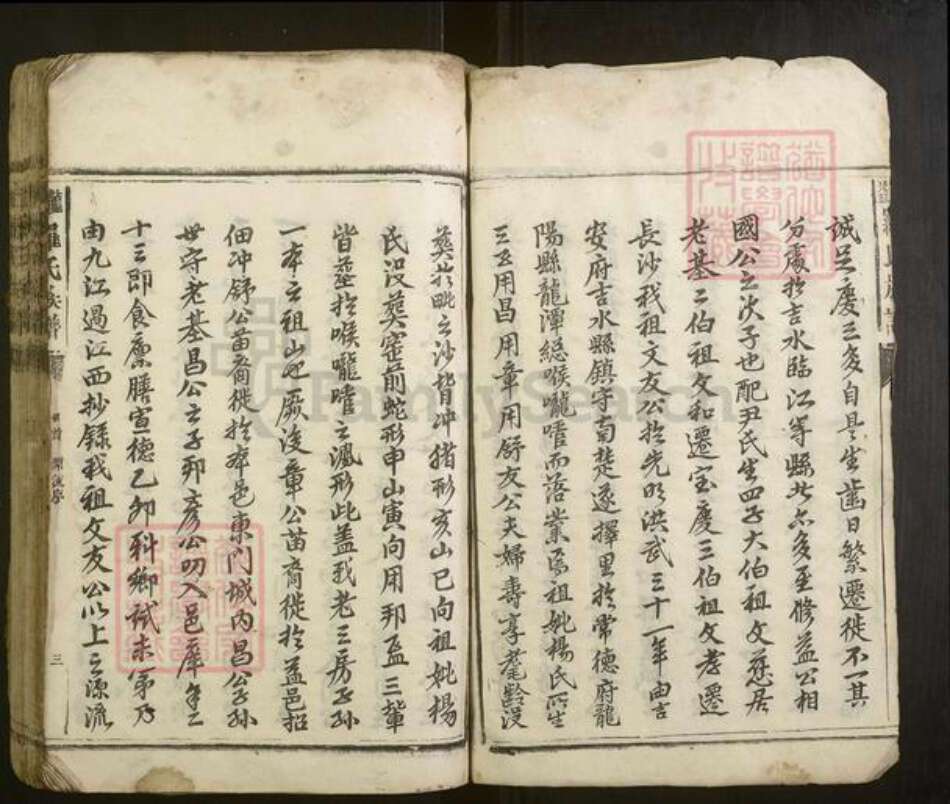 誠足慶三多自是生齒日繁遷徙不一其
分處於吉水臨江等縣者亦多至修益公相
國公之次子也配尹氏生四子大伯祖文慈居
老基二伯祖文和遷宝慶三伯祖文孝遷
長沙我祖文友公於先明洪武三十一年由吉
安府吉水縣鎮守南楚遂擇里於常德府龍
陽縣龍潭總喉嚨嗜而落業焉祖妣楊氏所生
三子用昌用章用舒友公夫婦壽享耄齡没
葬於毗之沙背冲猪形亥山巳向祖妣楊
氏没葬窑前蛇形申山寅向用邦孟三輩
皆葬於喉嚨嗜之渢形此盖我老三房子孫
一本之祖山也厥後章公苗裔徙於益邑招
佃冲舒公苗裔徙於本邑東門城内昌公子孫
世守老基昌公之子邦彦公叨入邑庠年二
十三即食廪膳宣德乙卯科鄉試未第乃
由九江過江西抄録我祖文友公以上之源流
羅氏族譜
三
FamilySearch